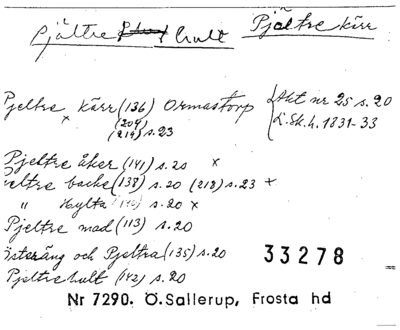 Pjältre hult Pjältre kärr
Pjeltre kärr (136) Ormastorp Akt nr 25 s.20
(209)
(219) s.23 L.Sk.h. 1831-33
Pjeltre åker (141) s.20 x
Pjeltre backe (138) s.20 (218) s.23 x
" Hylta s.20 x
Pjeltre mad (113) s.20
Österäng och Pjeltra (135) s.20 33278
Pjeltrehult (142) s.20
Nr 7290. Ö.Sallerup, Frosta hd